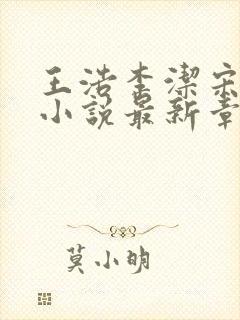 王浩李潔宋
小說最新章
莫小明